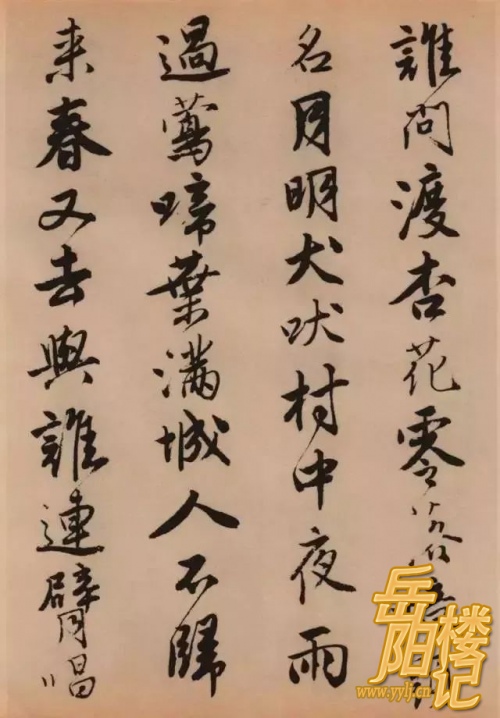 誰問渡杏花零落
名月明犬吠村中夜雨
過鶯啼葉滿城人不歸
来春又去與誰連臂唱
岳阳楼记
www.yylj.cn